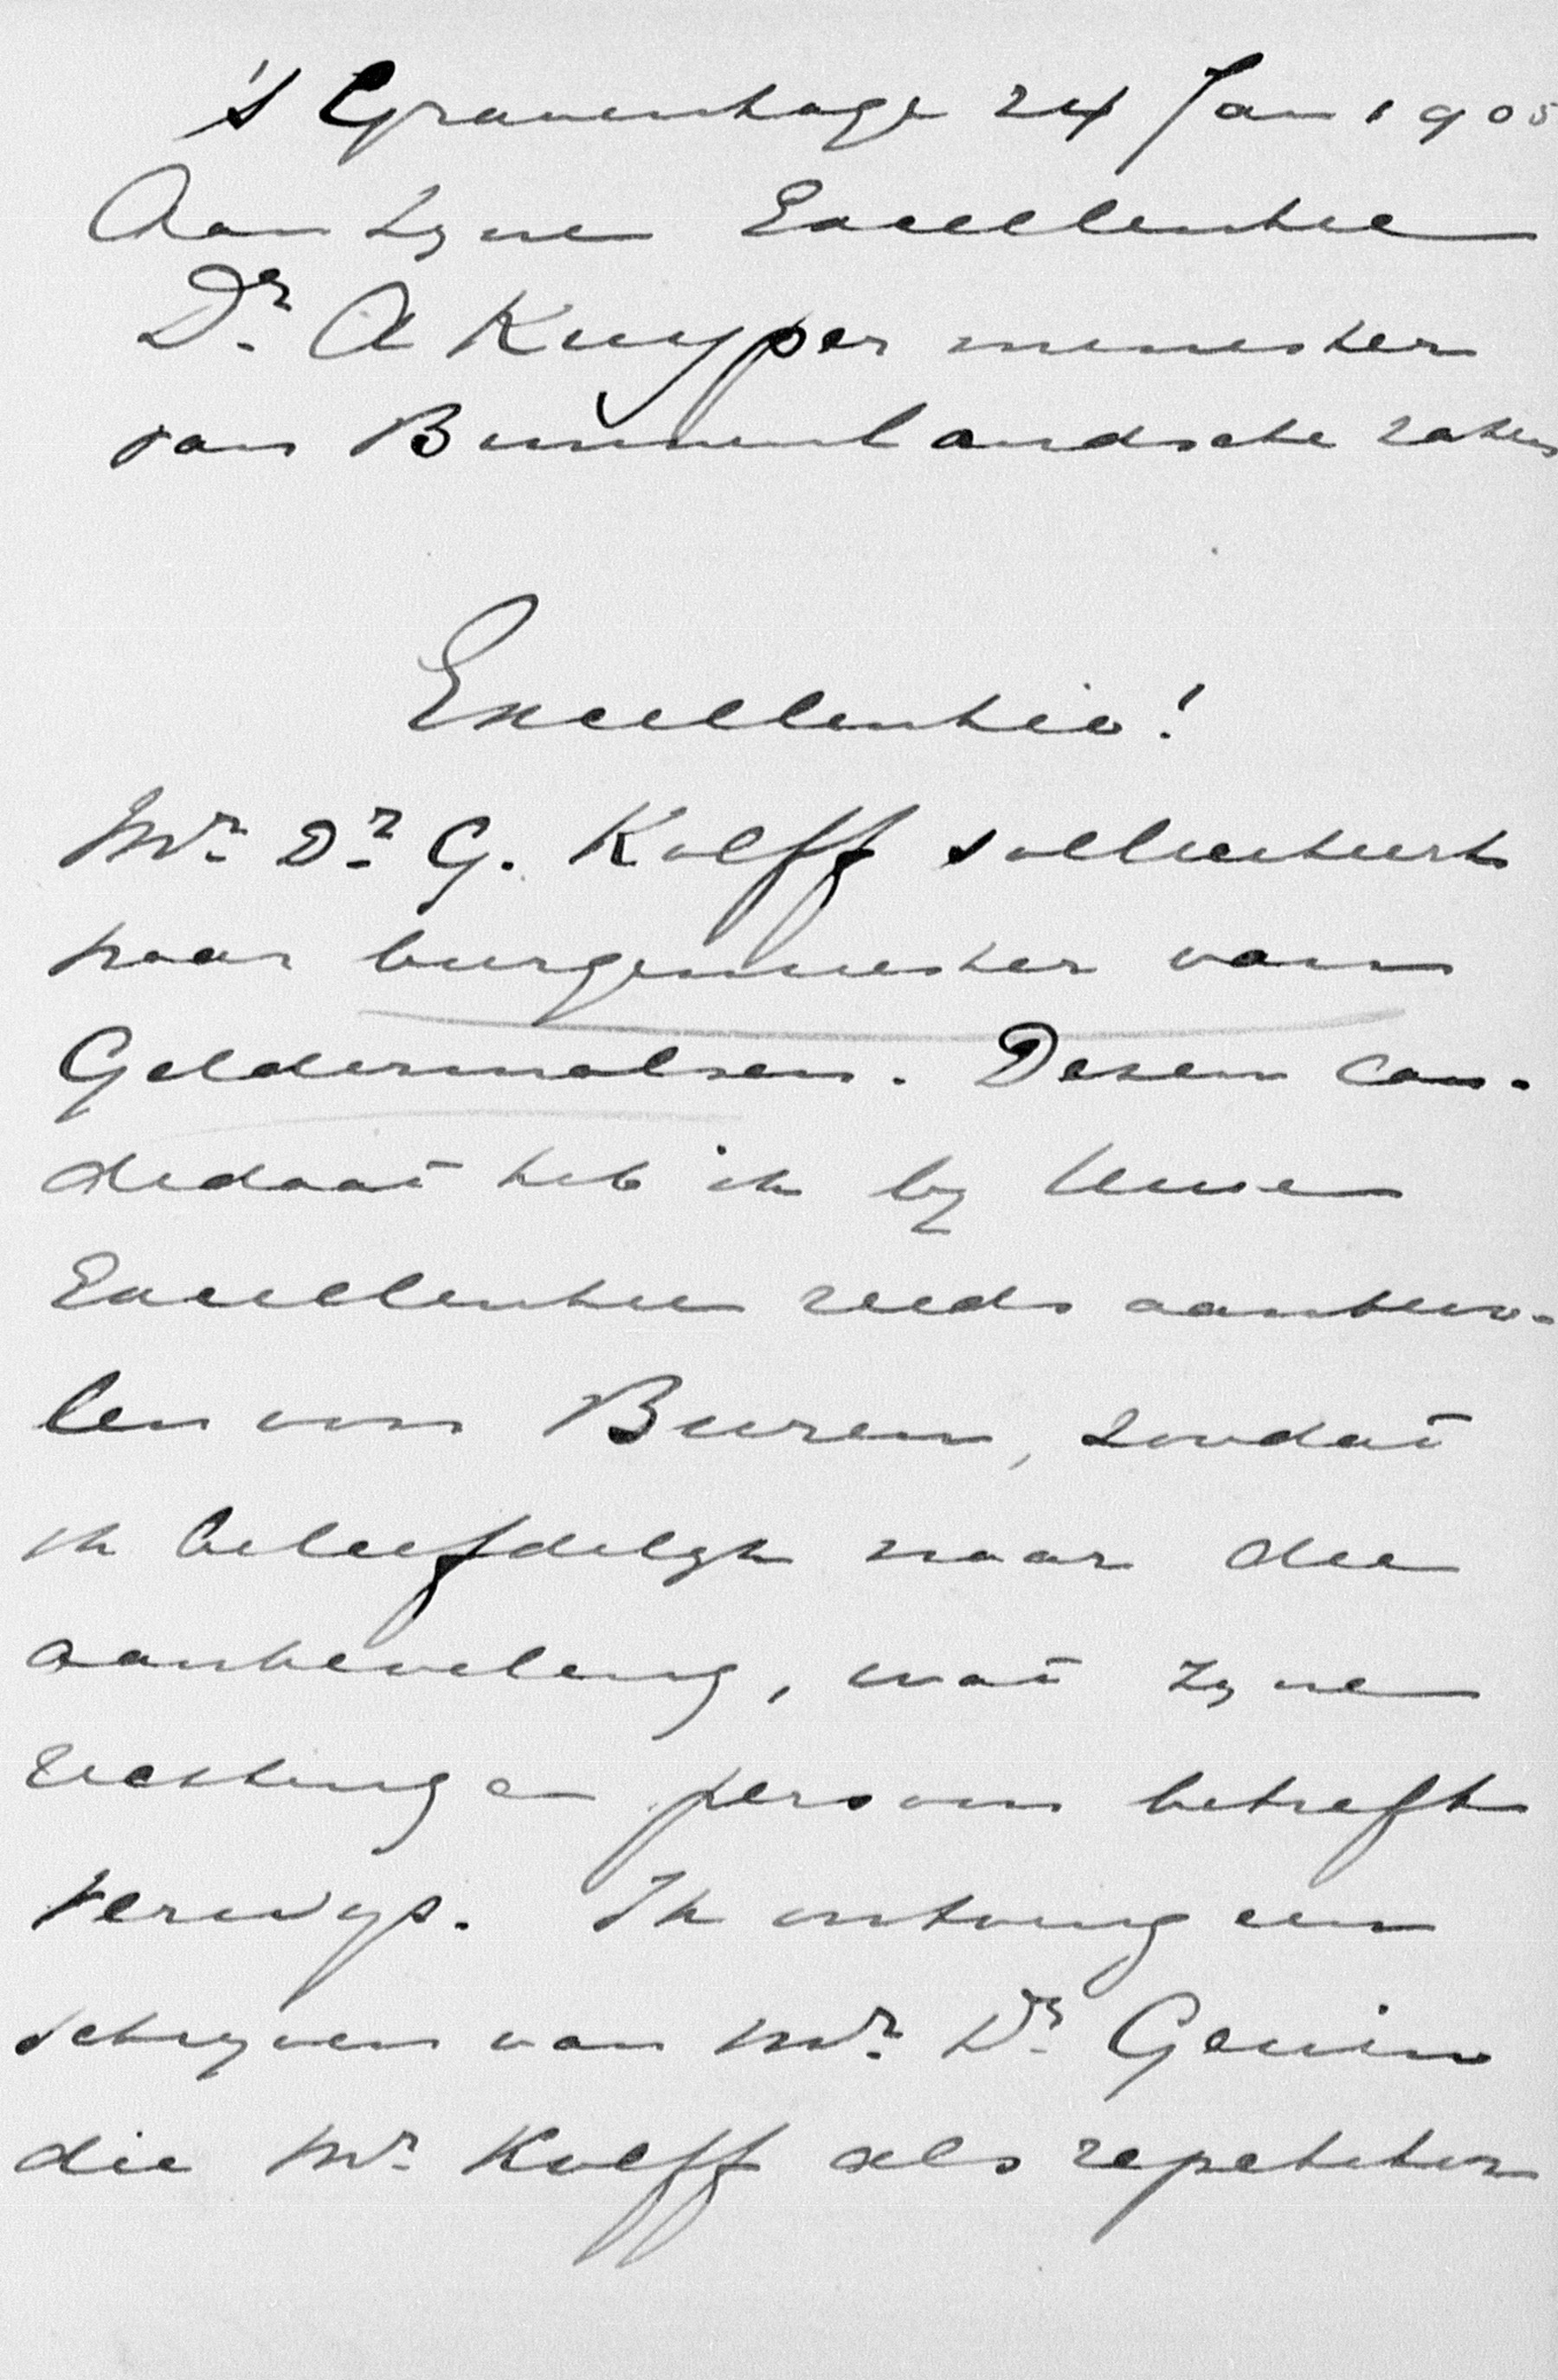 's Gravenhage 24 Jan 1905
Aan Zyne Excellentie
Dr. A Kuyper minister
van Binnenlandsche zaken
Excellentie!
Mr. Dr. G. Kolff solliciteert
naar burgemeester van
Geldermalsen. Dezen can-
didaat heb ik by Uwe
Excellentie reeds aanbevo-
len voor Buren, zoodat
ik beleefdelyk naar die
aanbeveling, wat zyne
richting en persoon betreft
verwys. Ik ontving een
schryven van Mr. Dr. Gewin
die Mr. Kolff als repetitor